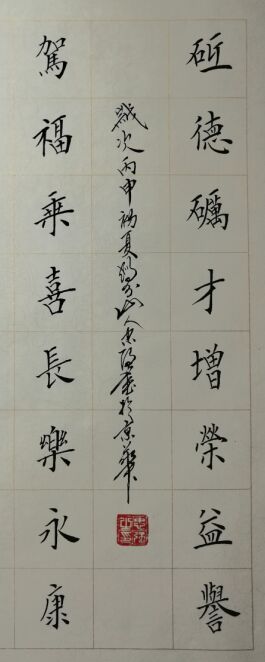 砥德礪才增榮益譽
駕福乘喜長樂永康
歲次丙申初夏
山人
於京華